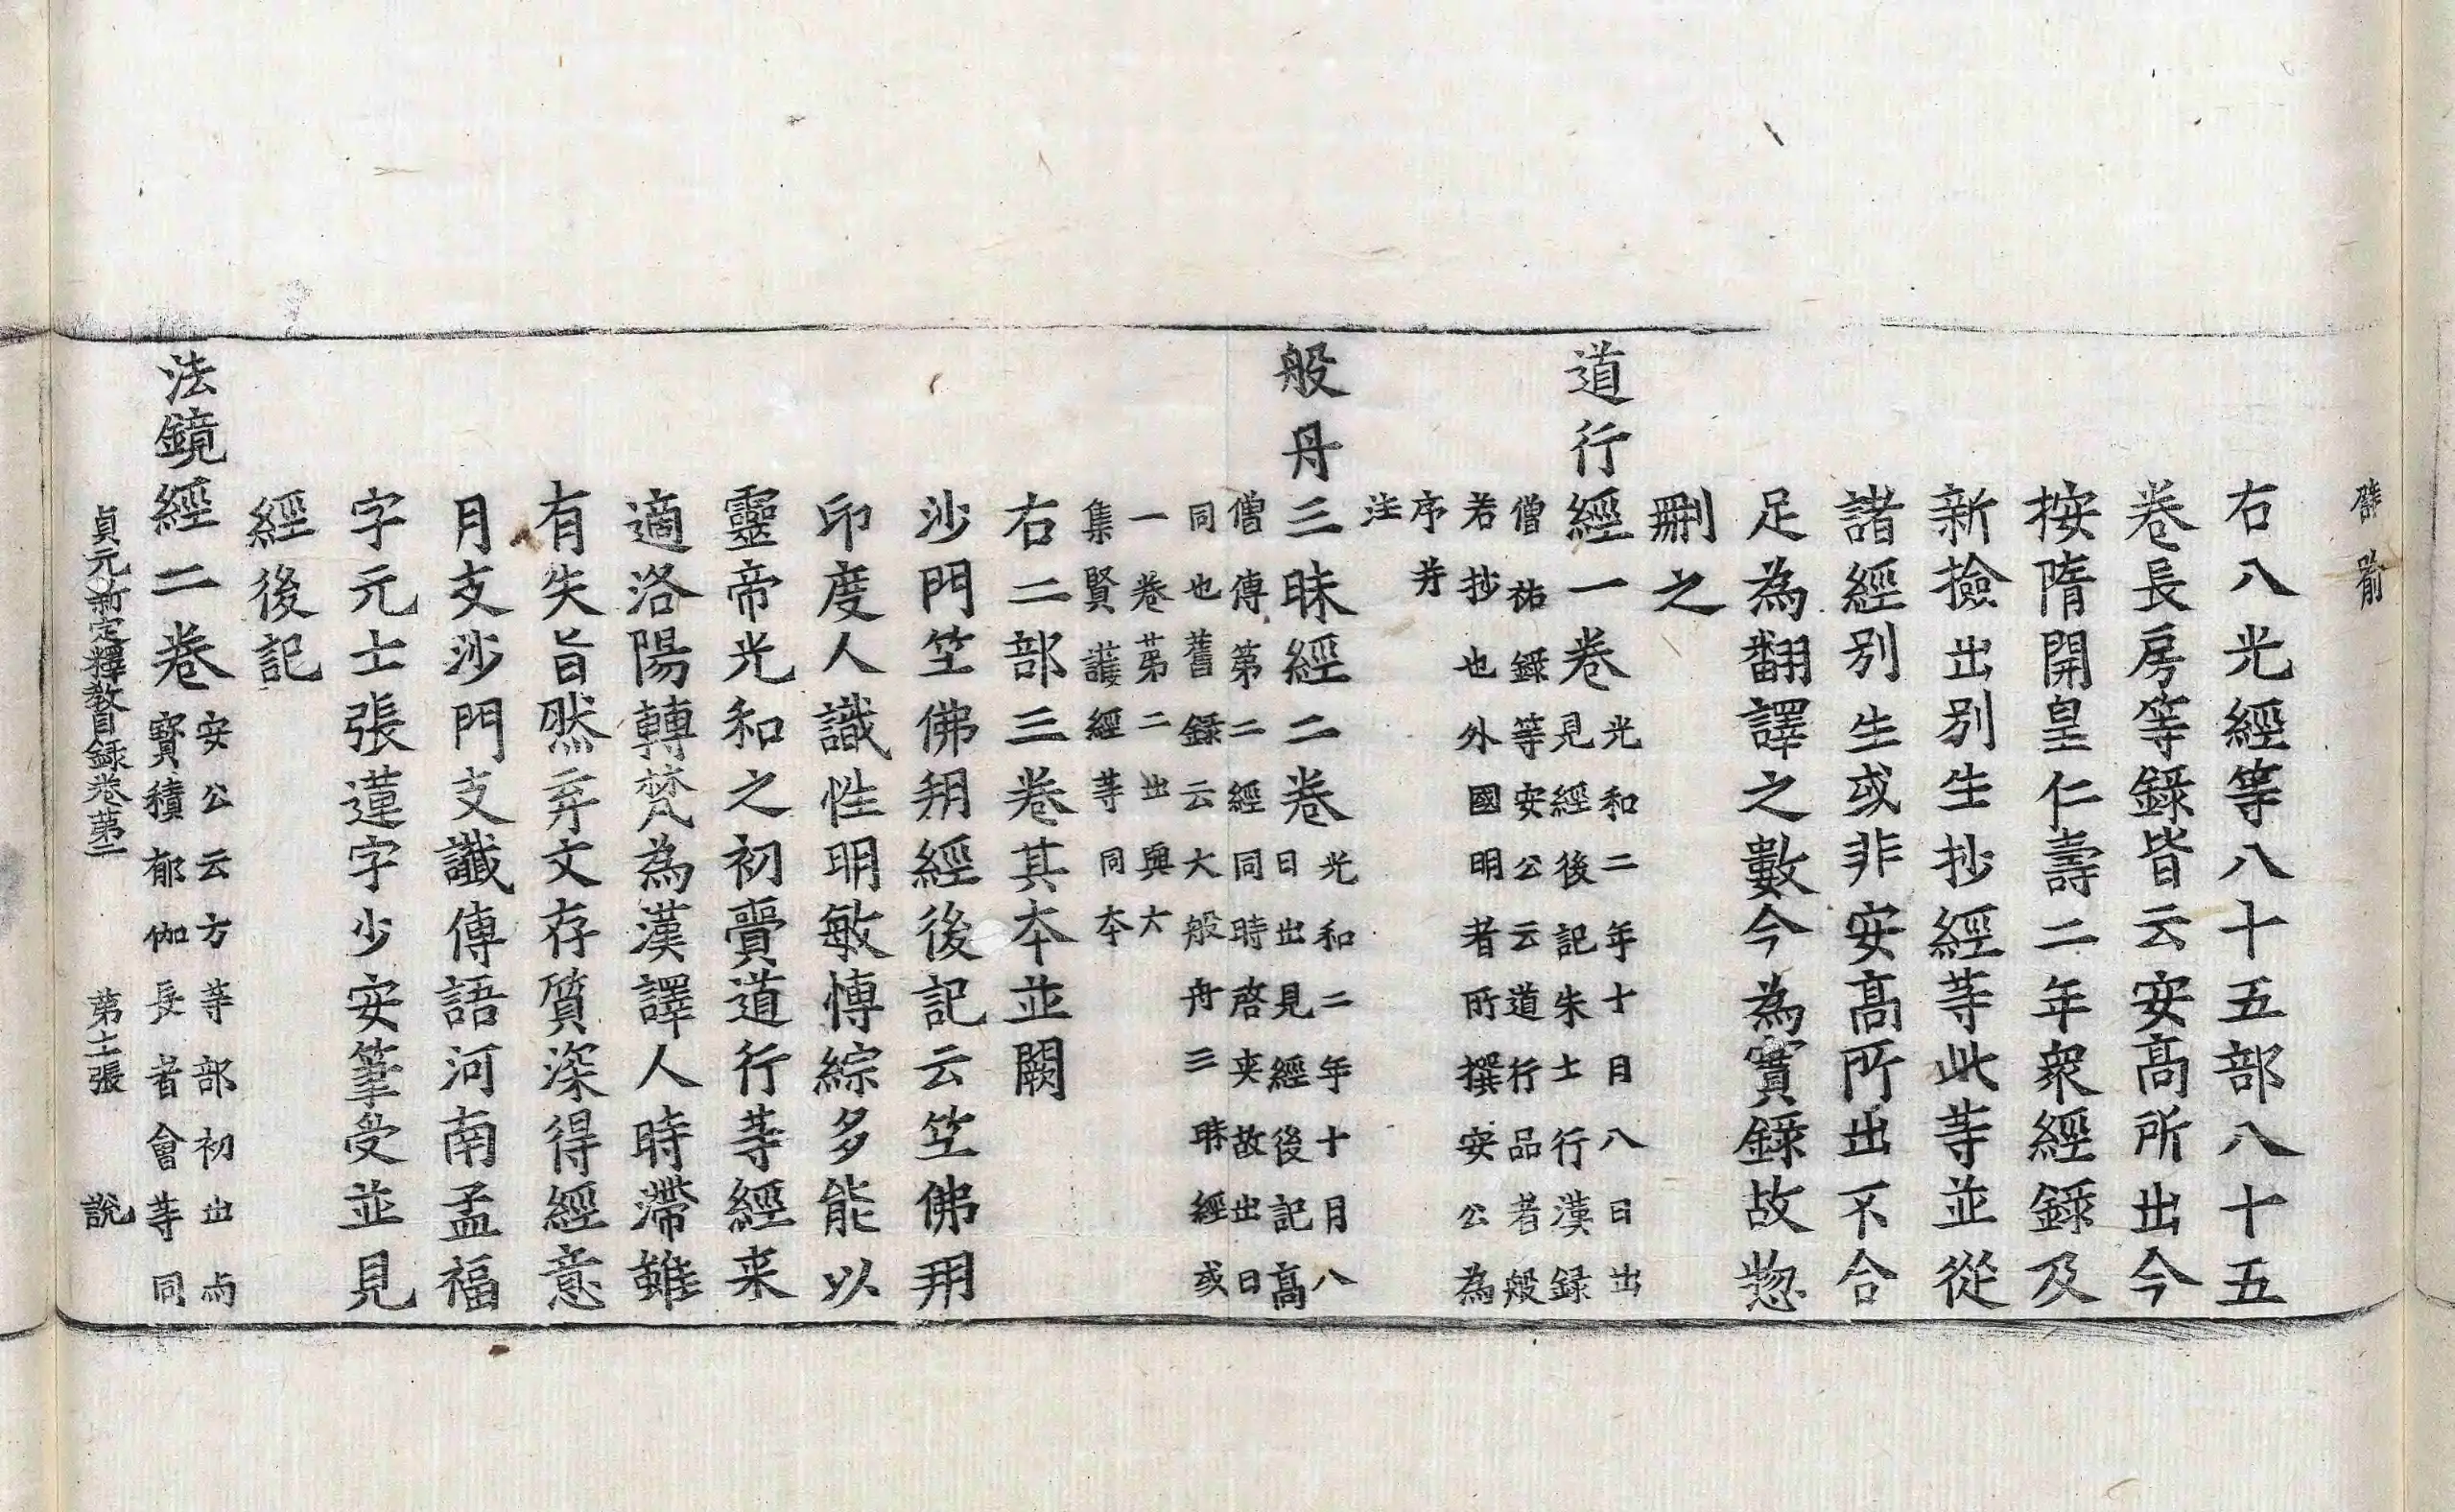 右八光經等八十五部八十五
卷長房等錄皆云安高所出今
按隋開皇仁壽二年衆經錄及
新撿出別生抄經等此等並從
諸經別生或非安高所出不合
足為翻譯之數今為實錄故惣
刪之
道行經一卷
光和二年十月八日出
見經後記朱士行漢錄
僧祐錄等安公云道行品者般
若抄也外國明者所撰安公為
序并
注
般舟三昧經二卷
光和二年十月八
日出見經後記高
僧傳第二經同時啓夾故出日
同也舊錄云大般舟三昧經或
一卷苐二出與大
集賢護經等同本
右二部三卷其本並闕
沙門竺佛朔經後記云竺佛朔
印度人識性明敏博綜多能以
靈帝光和之初賷道行等經来
適洛陽轉梵為漢譯人時滯雖
有失旨然弃文存質深得經意
月支沙門支讖傳語河南孟福
字元士張蓮字少安筆受並見
經後記
法鏡經二卷
安公云方等部初出兩
寳積郁伽長者會等同
貞元新定釋教目録卷苐二 苐十二張 說